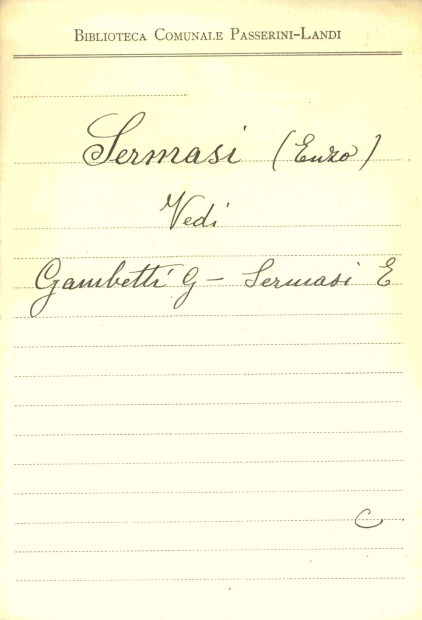 Biblioteca Comunale Passerini-Landi
Sermasi (Enzo)
Vedi
Gambetti G - Sermasi E
C